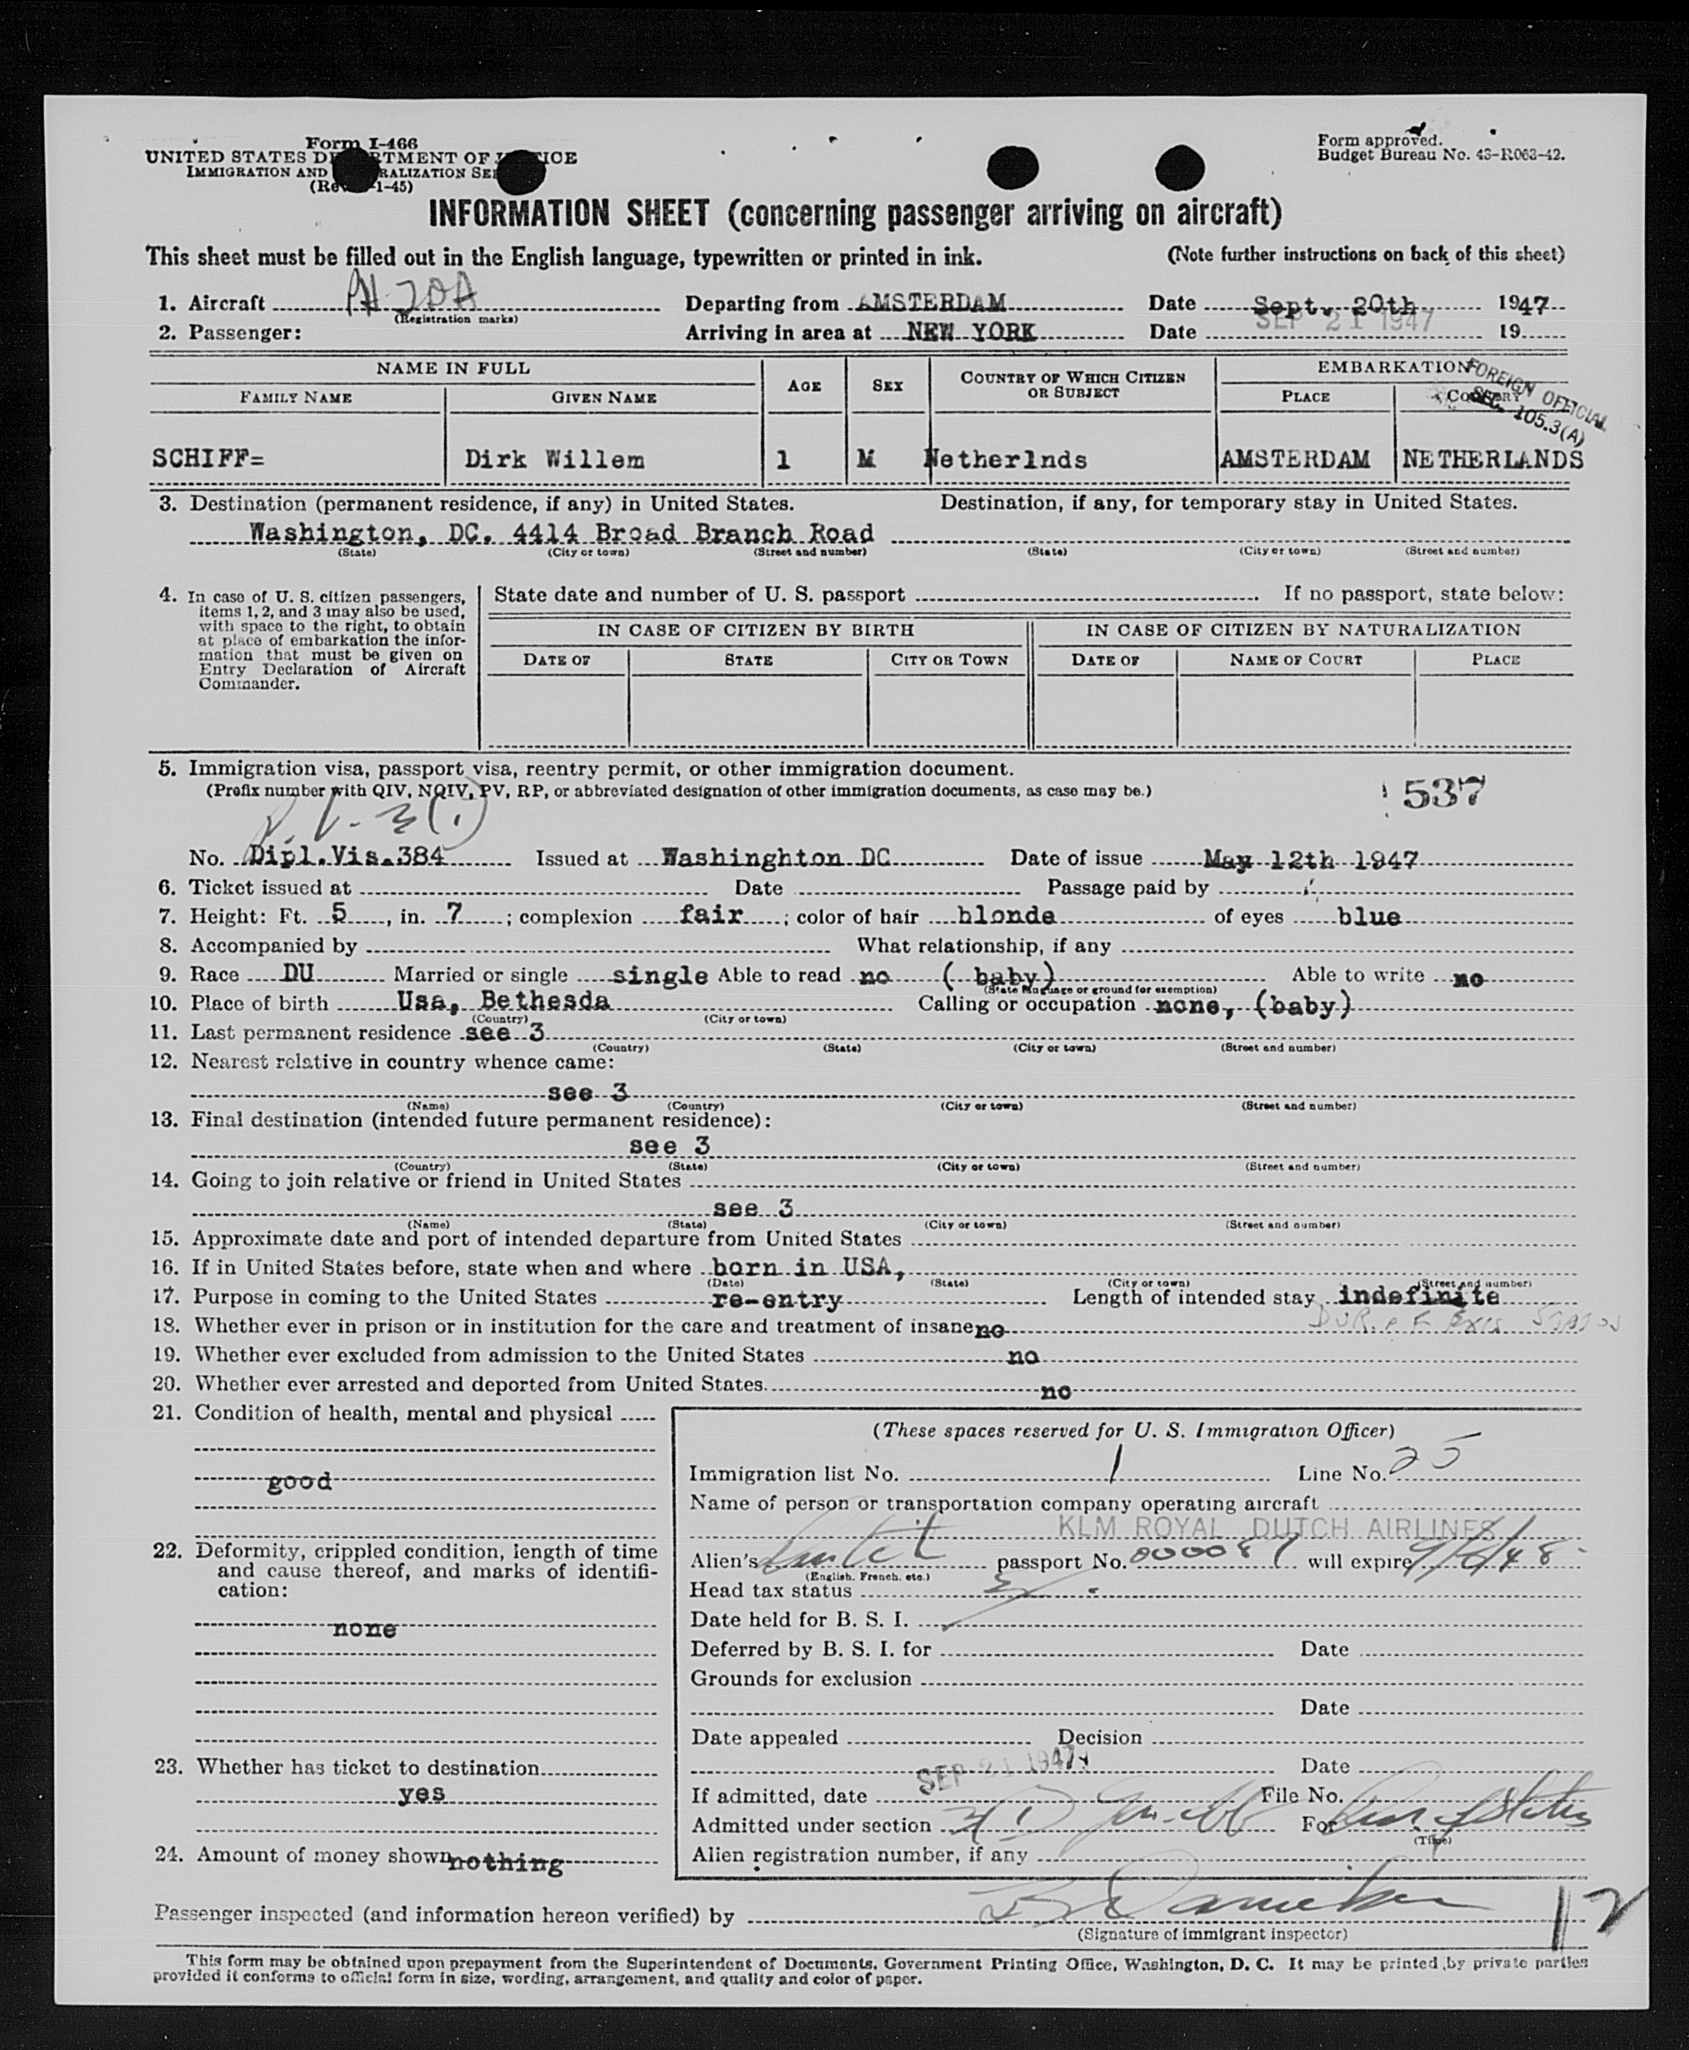 Form I-466
UNITED STATES DEPARTMENT OF JUSTICE
IMMIGRATION AND NATURALIZATION SERVICE
(Rev. 1-45)
Form approved.
Budget Bureau No. 43-R063-42.
INFORMATION SHEET (concerning passenger arriving on aircraft)
This sheet must be filled out in the English language, typewritten or printed in ink. (Note further instructions on back of this sheet)
1. Aircraft PH Departing from AMSTERDAM Date Sept. 20th 1947
(Registration marks)
2. Passenger: Arriving in area at NEW YORK Date SEP 21 1947 19
NAME IN FULL AGE SEX COUNTRY OF WHICH CITIZEN OR SUBJECT EMBARKATION
FAMILY NAME GIVEN NAME PLACE COUNTRY
FOREIGN OFFICIAL
SEC. 105.3(A)
SCHIFF= Dirk Willem 1 M Netherlnds AMSTERDAM NETHERLANDS
3. Destination (permanent residence, if any) in United States. Destination, if any, for temporary stay in United States.
Washington, DC. 4414 Broad Branch Road
(State) (City or town) (Street and number) (State) (City or town) (Street and number)
4. In case of U. S. citizen passengers,
items 1, 2, and 3 may also be used,
with space to the right, to obtain
at place of embarkation the infor-
mation that must be given on
Entry Declaration of Aircraft
Commander.
State date and number of U. S. passport If no passport, state below:
IN CASE OF CITIZEN BY BIRTH IN CASE OF CITIZEN BY NATURALIZATION
DATE OF STATE CITY OR TOWN DATE OF NAME OF COURT PLACE
5. Immigration visa, passport visa, reentry permit, or other immigration document.
(Prefix number with QIV, NQIV, PV, RP, or abbreviated designation of other immigration documents, as case may be.)
537
P.V. 3(1)
No. Dipl.Vis.384 Issued at Washinghton DC Date of issue May 12th 1947
6. Ticket issued at Date Passage paid by
7. Height: Ft. 5, in. 7; complexion fair; color of hair blonde of eyes blue
8. Accompanied by What relationship, if any
9. Race DU Married or single single Able to read no (baby) Able to write no
(State language or ground for exemption)
10. Place of birth Usa, Bethesda Calling or occupation none, (baby)
(Country) (City or town)
11. Last permanent residence see 3
(Country) (State) (City or town) (Street and number)
12. Nearest relative in country whence came:
see 3
(Name) (Country) (City or town) (Street and number)
13. Final destination (intended future permanent residence):
see 3
(Country) (State) (City or town) (Street and number)
14. Going to join relative or friend in United States
see 3
(Name) (State) (City or town) (Street and number)
15. Approximate date and port of intended departure from United States
16. If in United States before, state when and where born in USA,
(Date) (State) (City or town) (Street and number)
17. Purpose in coming to the United States re-entry Length of intended stay indefinite
18. Whether ever in prison or in institution for the care and treatment of insane no
19. Whether ever excluded from admission to the United States no
20. Whether ever arrested and deported from United States. no
21. Condition of health, mental and physical
good
22. Deformity, crippled condition, length of time
and cause thereof, and marks of identifi-
cation:
none
23. Whether has ticket to destination
yes
24. Amount of money shown nothing
(These spaces reserved for U. S. Immigration Officer)
Immigration list No. 1 Line No. 25
Name of person or transportation company operating aircraft
KLM ROYAL DUTCH AIRLINES
Alien's passport No. will expire
(English, French, etc.)
Head tax status
Date held for B. S. I.
Deferred by B. S. I. for Date
Grounds for exclusion
Date
Date appealed Decision
Date
If admitted, date SEP 21 1947 File No.
Admitted under section 3(1) For
(Time)
Alien registration number, if any
Passenger inspected (and information hereon verified) by
12
(Signature of immigrant inspector)
This form may be obtained upon prepayment from the Superintendent of Documents, Government Printing Office, Washington, D. C. It may be printed by private parties
provided it conforms to official form in size, wording, arrangement, and quality and color of paper.